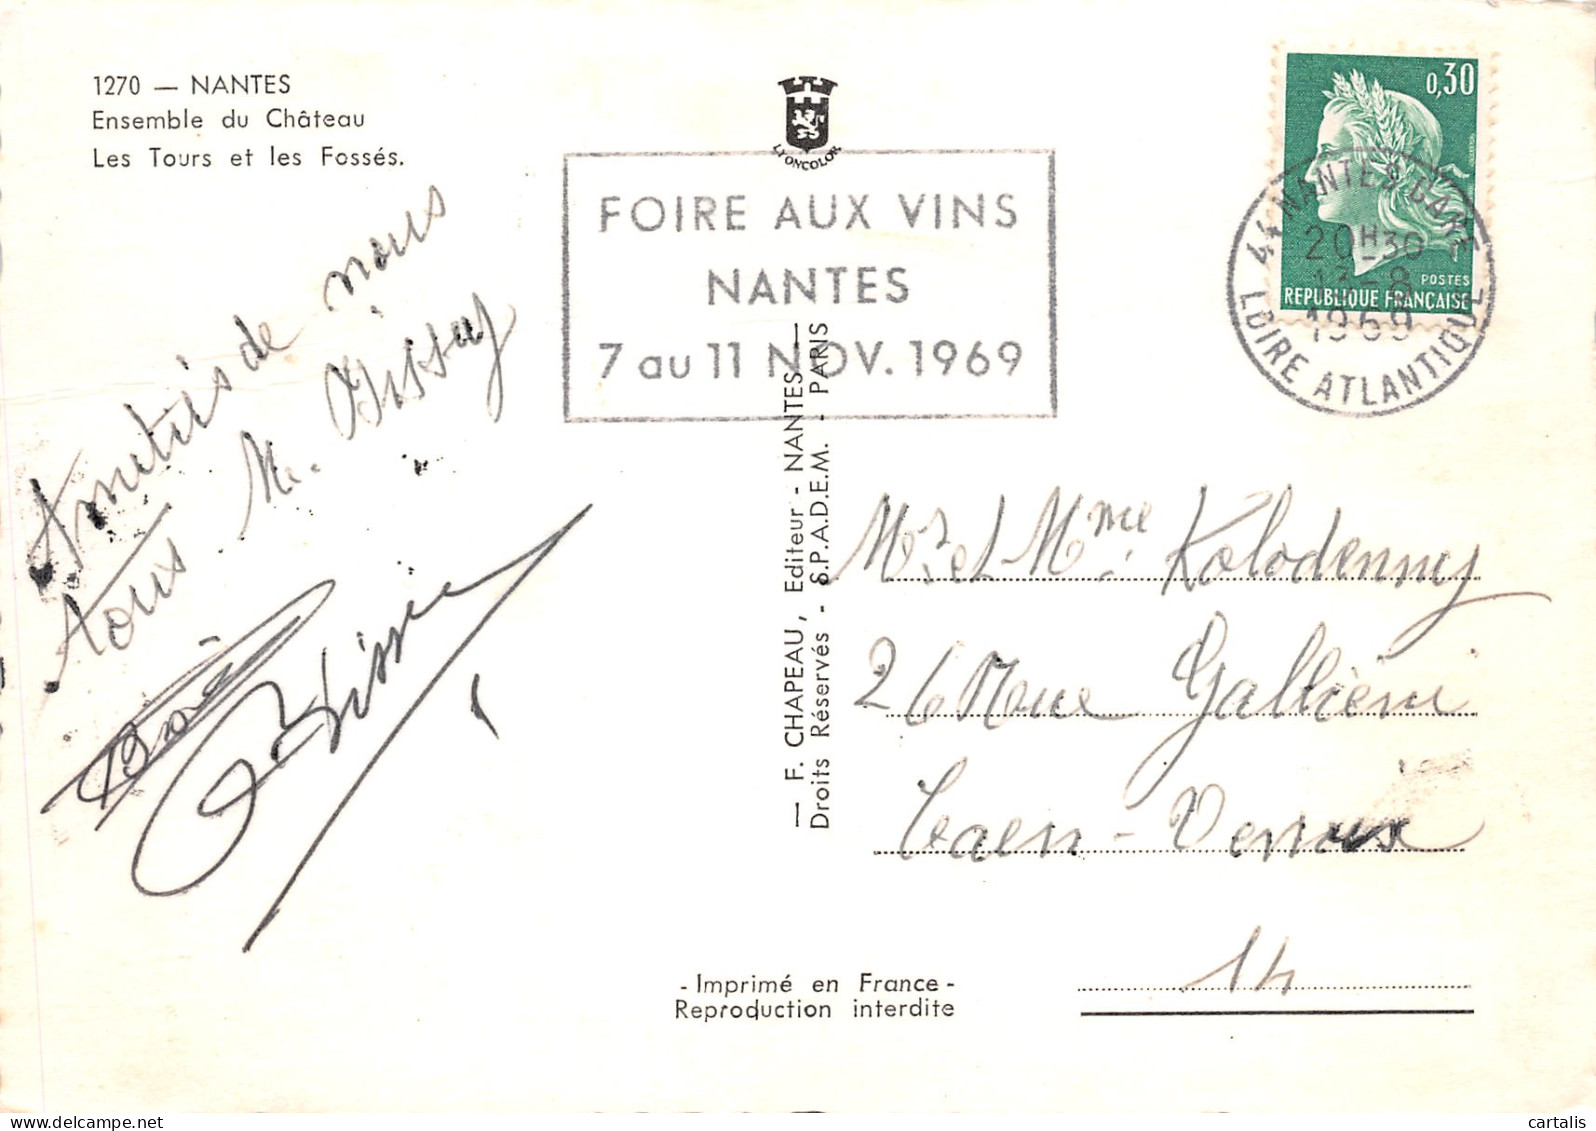 1270 — NANTES
Ensemble du Château
Les Tours et les Fossés.
LYONCOLOR
FOIRE AUX VINS
NANTES
7 au 11 NOV. 1969
0,30
POSTES
REPUBLIQUE FRANÇAISE
44 NANTES GARE
20H30
13-8
1969
LOIRE ATLANTIQUE
Amitiés de nous
tous M.
— F. CHAPEAU, Editeur - NANTES —
Droits Réservés - S.P.A.D.E.M. - PARIS
Mr et Mme Kolodenny
26 Rue Gallieni
Caen-Venoix
14
- Imprimé en France -
Reproduction interdite
cartalis
www.delcampe.net